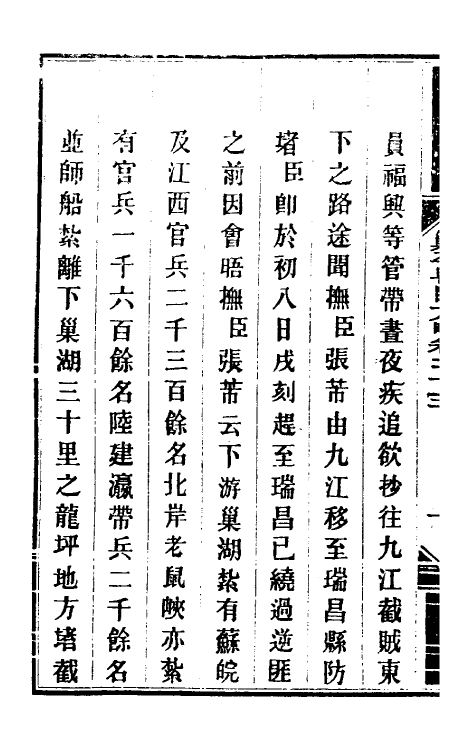 員福興等管帶晝夜疾追欲抄往九江截賊東
下之路途聞撫臣張芾由九江移至瑞昌縣防
堵臣卽於初八日戌刻趕至瑞昌已繞過逆匪
之前因會晤撫臣張芾云下游巢湖紮有蘇皖
及江西官兵二千三百餘名北岸老鼠峽亦紮
有官兵一千六百餘名陸建瀛帶兵二千餘名
並師船紮離下巢湖三十里之龍坪地方堵截